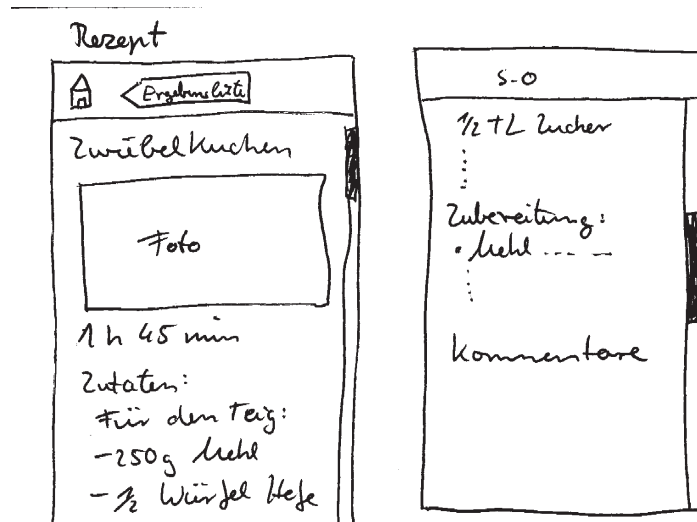 Rezept
Ergebnisliste
Zwiebelkuchen
Foto
1 h 45 min
Zutaten:
Für den Teig:
-250g Mehl
-1/2 Würfel Hefe
S-O
1/2 TL Zucker
Zubereitung:
• Mehl .... — 
Kommentare